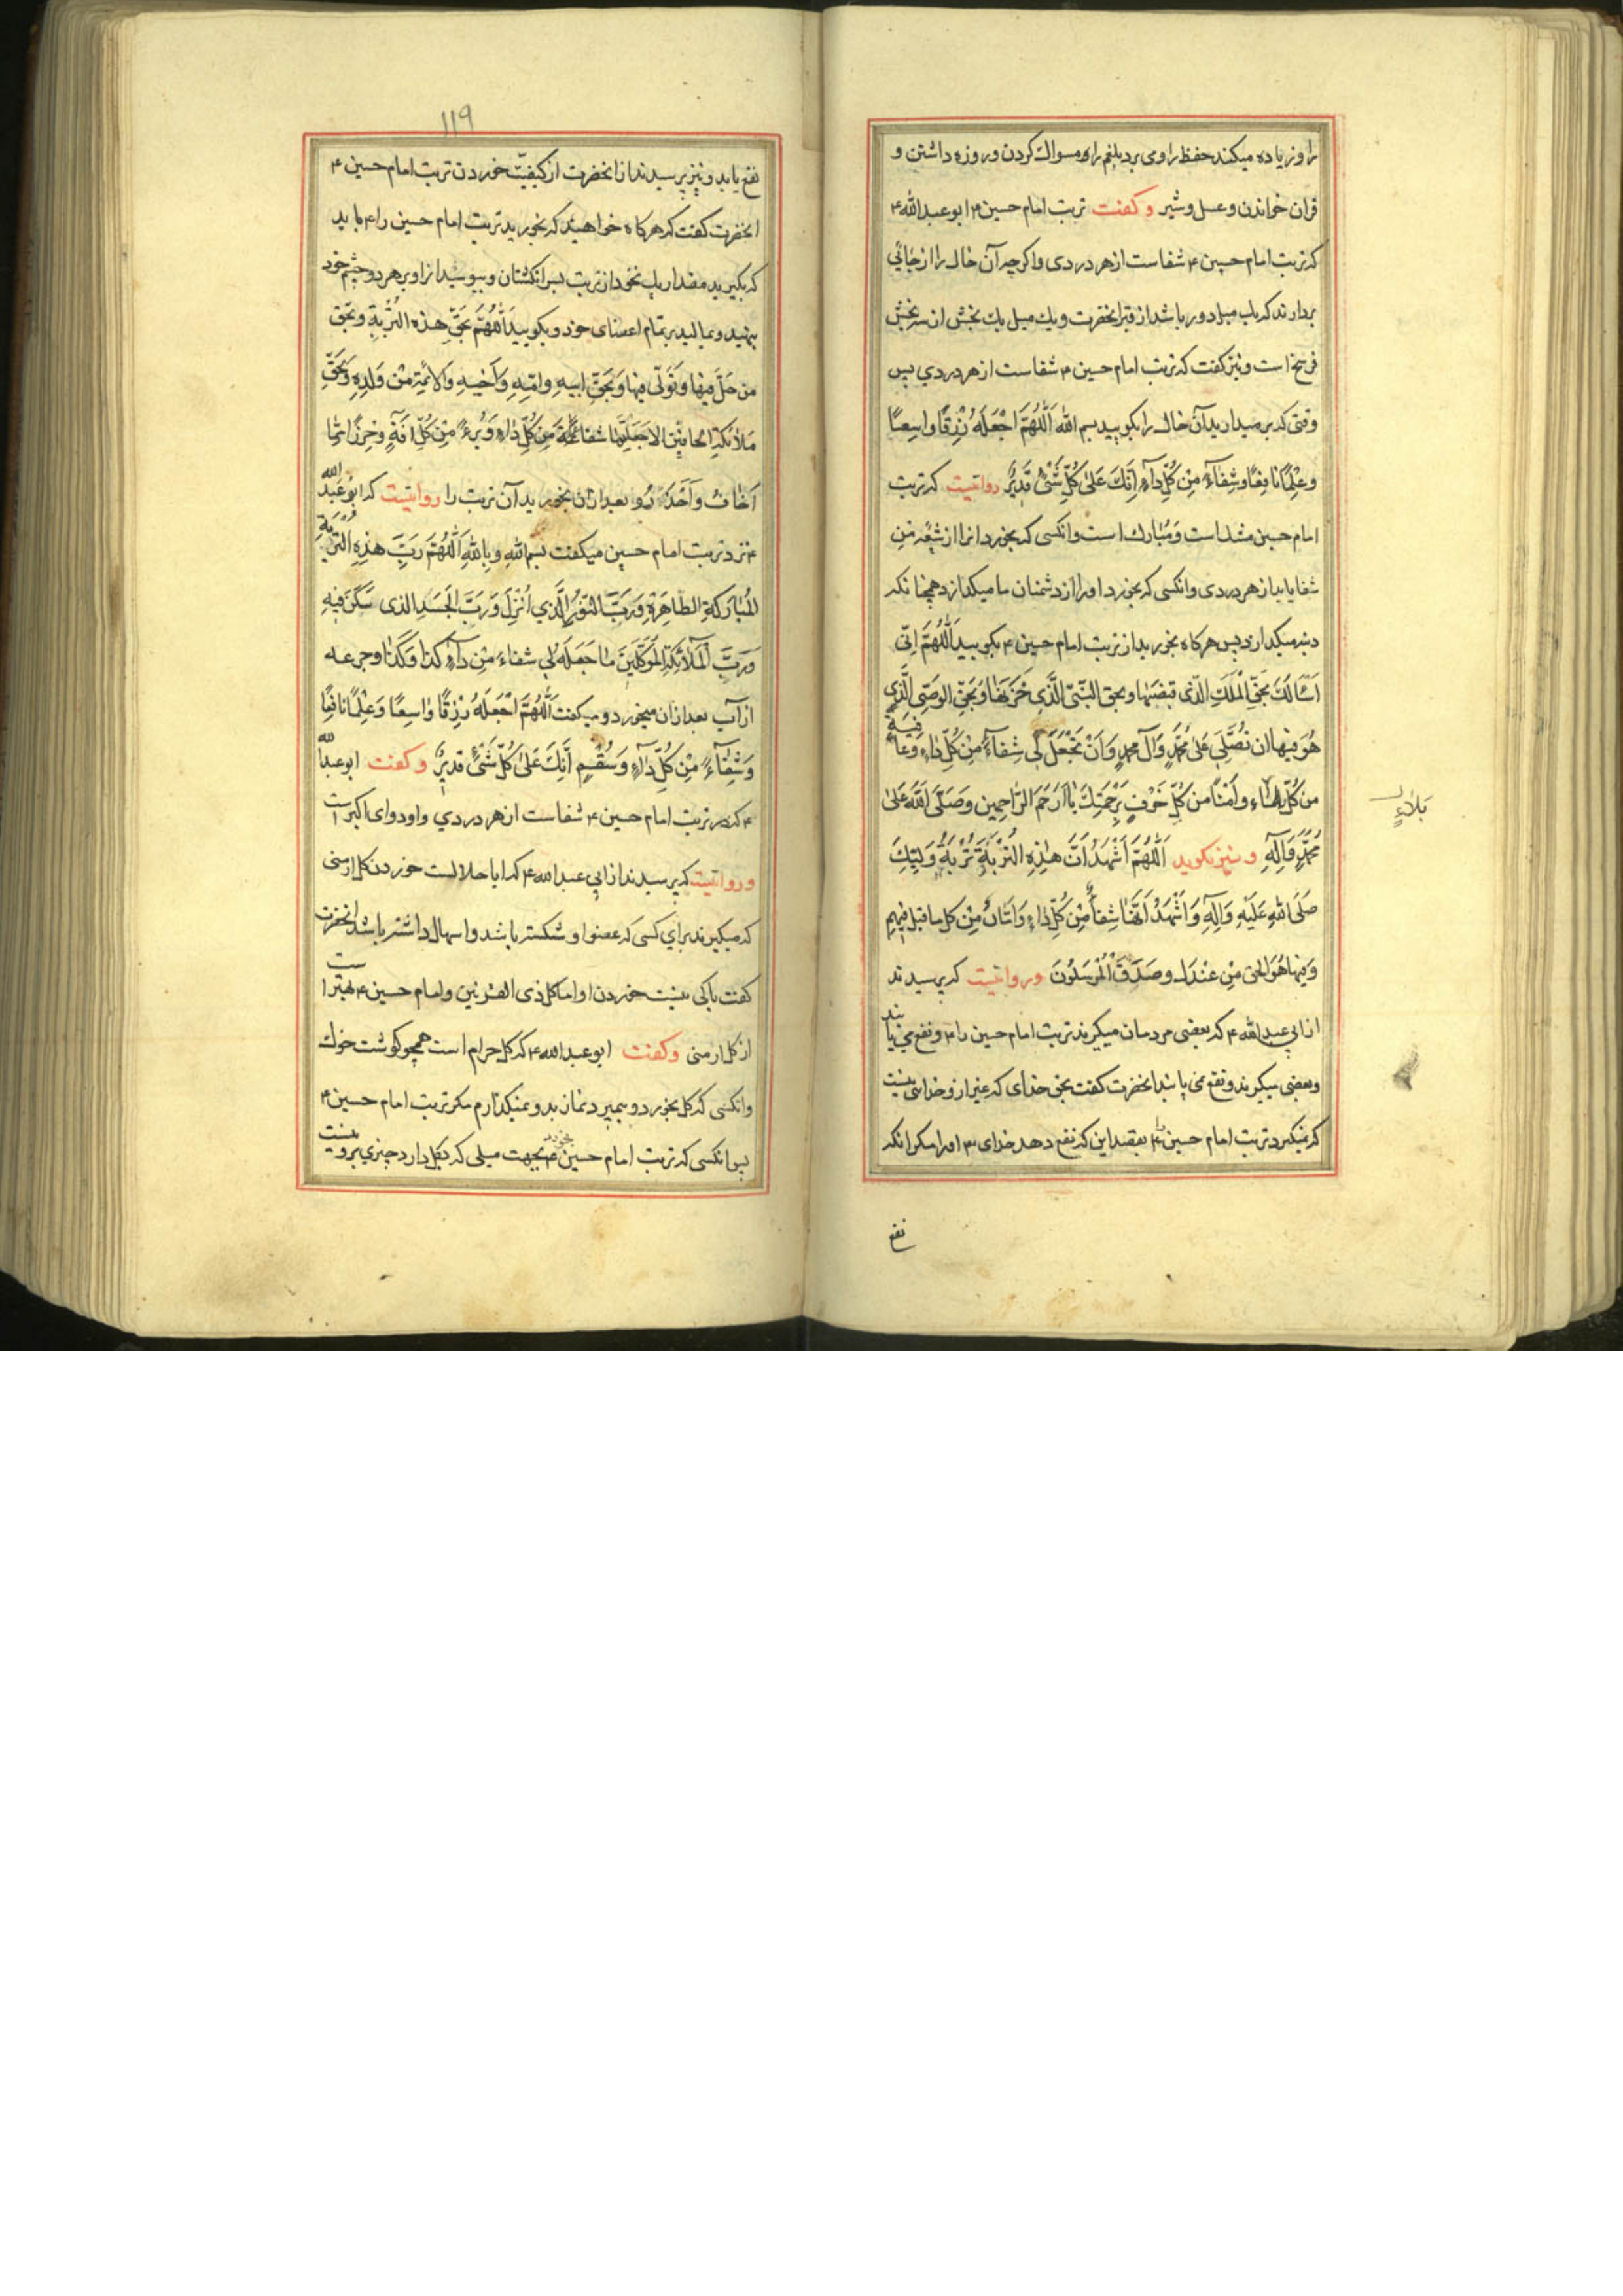 را و زیاده میکند حفظ را و می برد بلغم را و مسواك کردن و روزه داشتن و
قران خواندن و عسل و شیر و کفنت تربت امام حسین ۴ ابو عبدالله ۴
که تربت امام حسین ۴ شفاست از هر دردی و اکرچه آن خاك را از جائي
بردارند که یك میل دور باشد از قبر انحضرت و یك میل یك بخش از سه بخش
فرسخ است و نیز کفت که تربت امام حسین ۴ شفاست از هر دردي پس
وقتی که بر میدارید آن خاك را بکویید بسم الله اَللّهُمَّ اجْعَلْهُ رِزْقًا واسِعًا
وعِلْمًا نافِعًا وشِفَآءً مِنْ كُلِّ دآءٍ اِنَّكَ عَلىٰ كُلِّ شَىْءٍ قَدِيرٌ روایتیست که تربت
امام حسین ۴ شداست و مُبارك است و انکسی که بخورد انرا از شیعهٔ من
شفا یابد از هر دردی و انکسی که بخورد او را از دشمنان ما میکدازد همچنانکه
دنبه میکدازد پس هرکاه بخورید از تربت امام حسین ۴ بکویید اَللّهُمَّ اِنّی
اَسْاَلُكَ بِحَقِّ الْمَلَكِ الَّذی قبضها وبحق النَّبیّ الَّذی خَزَنَها وَبِحَقِّ الوَصِیّ الَّذی
هُوَ فیها ان تُصَلِّیَ عَلىٰ مُحَمَّدٍ وَآل محمدٍ وَاَنْ تَجْعَلَ لی شِفآءً مِنْ كُلِّ داءٍ وَعافِیَةً
من كُلِّ بلاءٍ واَمْنًا من كُلِّ خَوْفٍ بِرَحْمَتِكَ یا اَرْحَمَ الرّاحِمین وَصَلَّى اللّهُ عَلىٰ
بَلاءٍ
مُحَمَّدٍ وَآلِهِ و نیز بکوید اَللّهُمَّ اَشْهَدُ اَنَّ هذِهِ التُّرْبَةَ تُرْبَةُ وَلِیِّكَ
صَلَّى اللّهُ عَلَیْهِ وَآلِهِ وَاَشْهَدُ اَنَّها شِفاءٌ مِنْ كُلِّ داءٍ وَاَمانٌ مِنْ كل ما قیل فیهم
وَفیها هُوَ الحق مِنْ عِنْدِكَ وصَدَقَ الْمُرْسَلُونَ و روایتیست که پرسیدند
از ابي عبدالله ۴ که بعضی مردمان میکیرند تربت امام حسین را ۴ و نفع می یابند
و بعضی میکیرند و نفع نمی یابند انحضرت کفت بحق خدای که غیر از و خدائی نیست
که نمیکیرد تربت امام حسین ۴ بقصد این که نفع دهد خدای ۳ او را مکر انکه
نفع
۱۱۹
نفع یابد و نیز پرسیدند از انحضرت از کیفیّت خوردن تربت امام حسین ۴
انحضرت کفت که هرکاه خواهید که بخورید تربت امام حسین را ۴ باید
که بکیرید مقدار یك نخود از تربت بسر انکشتان و ببوسید انرا و بر هر دو چشم خود
بنهید و بمالید بر تمام اعضای خود و بکویید اَللّهُمَّ بِحَقِّ هذه التُّرْبَةِ وبحق
من حَلَّ فیها وَتَوَلّی فیها وَبِحَقِّ ابیهِ وامّهِ وَاَخیهِ وَالاَئِمَّةِ مِنْ وَلَدِهِ وَبِحَقِّ
مَلائکةِ الحافّین الا جَعَلْتَها شفاءً مِنْ كُلِّ داءٍ وَبُرْءً مِنْ كُلِّ آفَةٍ وحِرْزًا مِمّا
اَخافُ وَاَحْذَرُ و بعد از ان بخورید آن تربت را روایتیست که ابو عَبْد الله
۴ نزد تربت امام حسین میکفت بسم اللهِ وبِاللهِ اَللّهُمَّ رَبَّ هذِهِ التُّرْبَةِ
المُبارَكَةِ الطّاهِرَةِ وَرَبَّ النُّورِ الَّذی اُنْزِلَ وَرَبَّ الجَسَدِ الذی سَكَنَ فیهِ
وَرَبَّ الْمَلآئِكَةِ الْمُوَكَّلینَ ما جَعَلَهُ لی شفاءً مِنْ دآءِ كذا وَكَذا و جرعه
از آب بعد از ان میخورد و میکفت اَللّهُمَّ اجْعَلْهُ رِزْقًا واسِعًا وَعِلْمًا نافِعًا
وَشِفآءً مِنْ كُلِّ دآءٍ وَسُقْمٍ اِنَّكَ عَلىٰ كُلِّ شَىْءٍ قدیرٌ و کفت ابو عبدالله
۴ که در تربت امام حسین ۴ شفاست از هر دردي و او دوای اکبر است
و روایتیست که پرسیدند از ابي عبدالله ۴ که ایا حلالست خوردن کل ارمنی
که میکیرند برای کسی که عضو او شکسته باشد و اسهال داشته باشد انحضرت
کفت باکی نیست خوردن او اما کل ذی القرنین و امام حسین ۴ بهتر است
از کل ارمنی و کفت ابو عبدالله ۴ که کل حرام است همچو کوشت خوك
و انکسی که کل بخورد و بمیرد نماز بدو نمیکذارم مکر تربت امام حسین ۴
پس انکسی که تربت امام حسین ۴ بخورد بجهت میلی که بکل دارد چیزی برو نیست